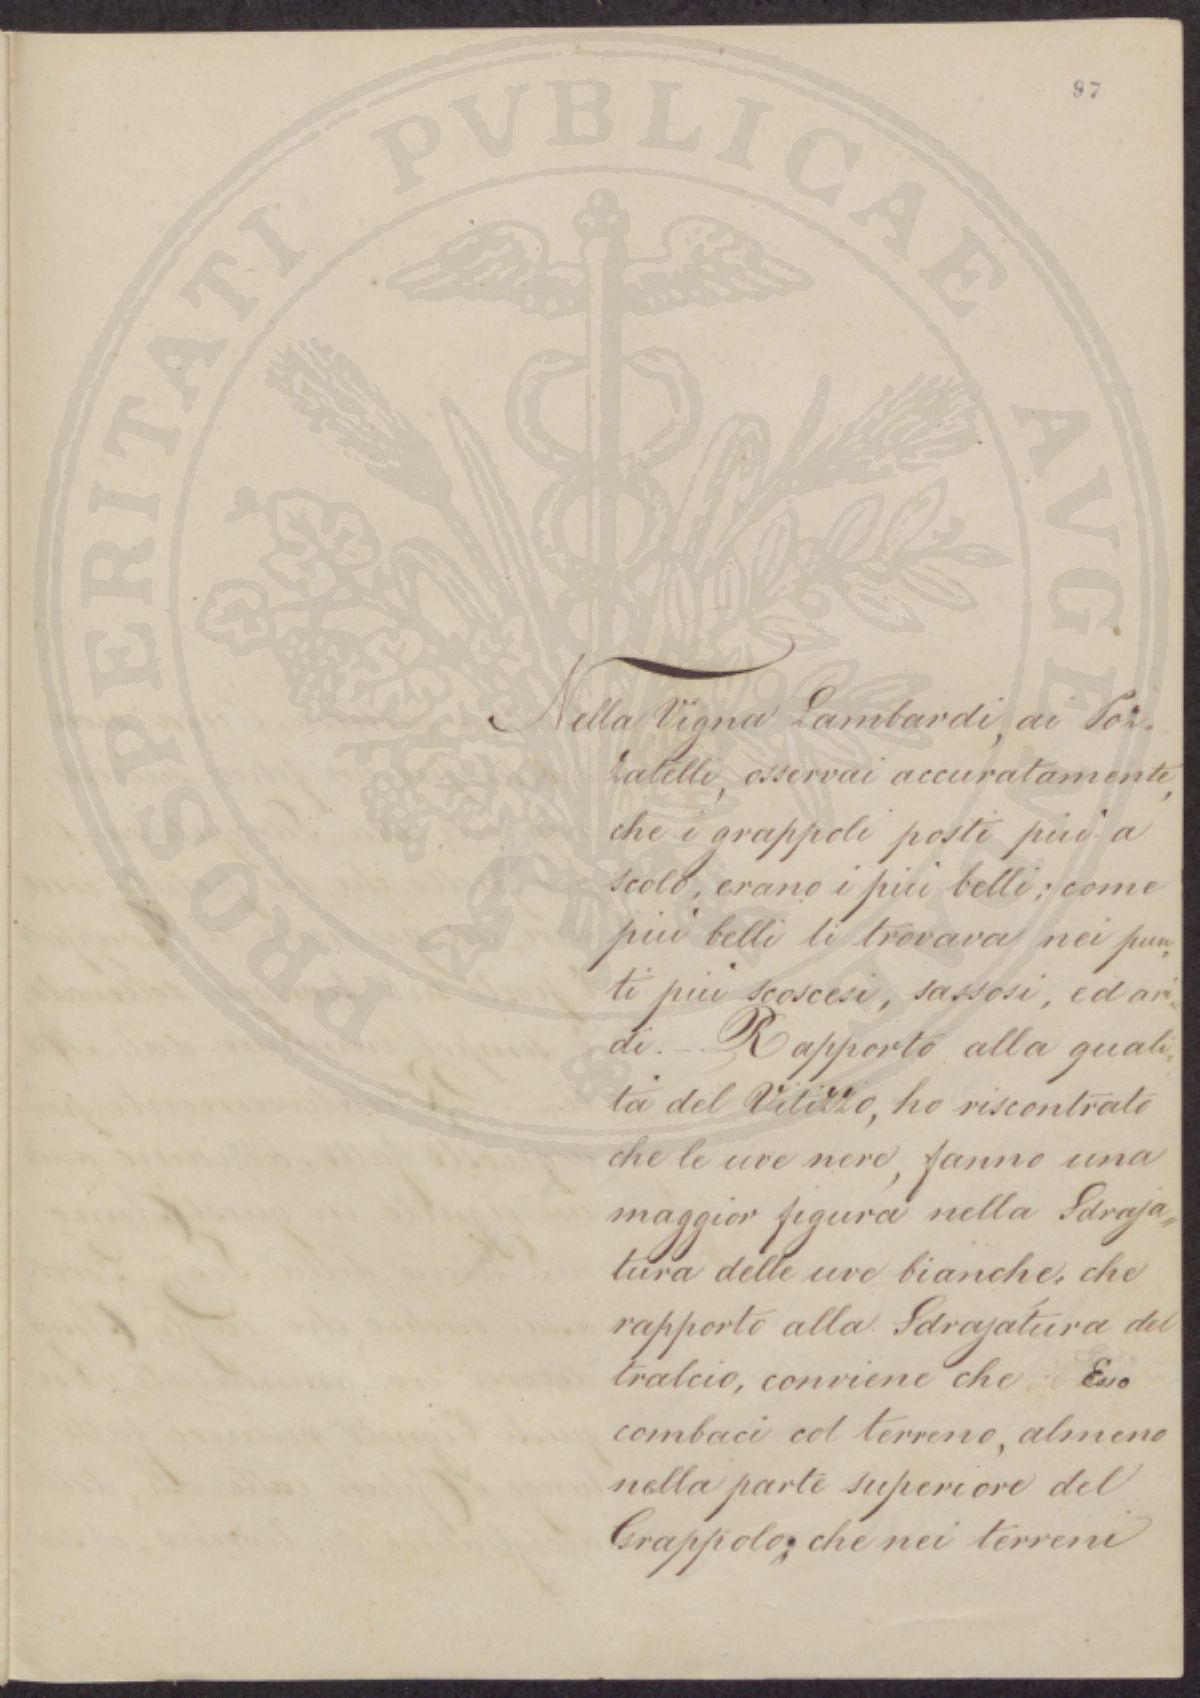 97
PROSPERITATI PVBLICAE AVGENDAE
Nella Vigna Lambardi, ai Poz-
zatelli, osservai accuratamente,
che i grappoli posti più a
scolo, erano i più belli; come
più belli li trovava nei pun-
ti più scoscesi, sassosi, ed ari-
di. - Rapporto alla quali-
tà del Vitizzo, ho riscontrato
che le uve nere, fanno una
maggior figura nella Sdraja-
tura delle uve bianche; che
rapporto alla Sdrajatura del
tralcio, conviene che Esso
combaci col terreno, almeno
nella parte superiore del
Grappolo; che nei terreni